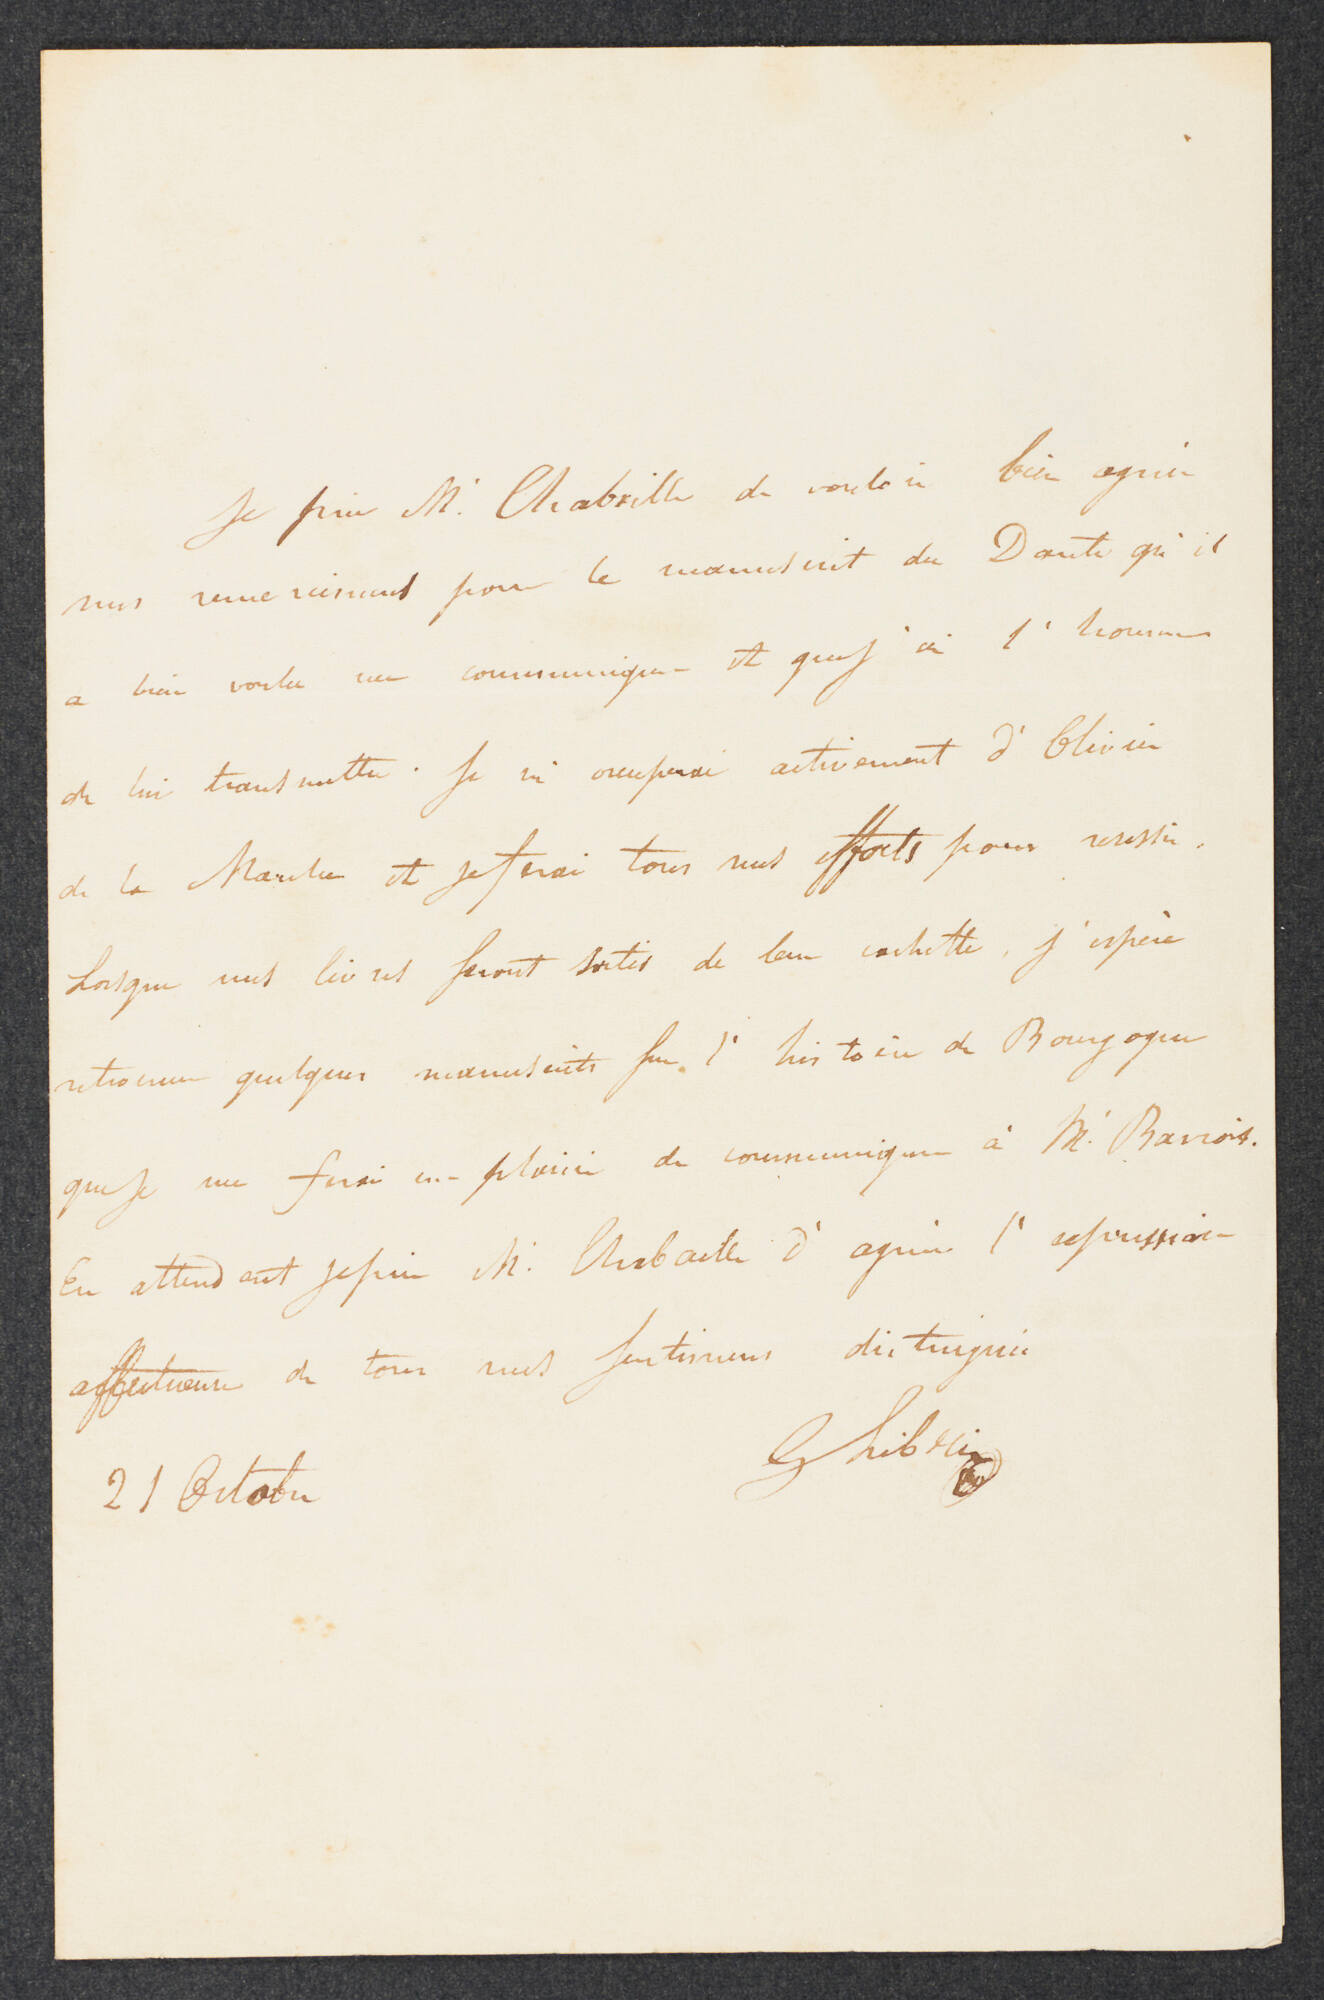 Je prie Mr. Chabaille de vouloir bien agréer
mes remerciemens pour le manuscrit du Dante qu'il
a bien voulu me communiquer et que j'ai l'honneur
de lui transmettre. Je m'occuperai activement d'Olivier
de la Marche et je ferai tous mes efforts pour réussir.
Lorsque mes livres seront sortis de leur cachette, j'espère
retrouver quelques manuscrits sur l'histoire de Bourgogne
que je me ferai un plaisir de communiquer à Mr. Barrois.
En attendant je prie Mr. Chabaille d'agréer l'expression
affectueuse de tous mes sentimens distingués
21 Octobre